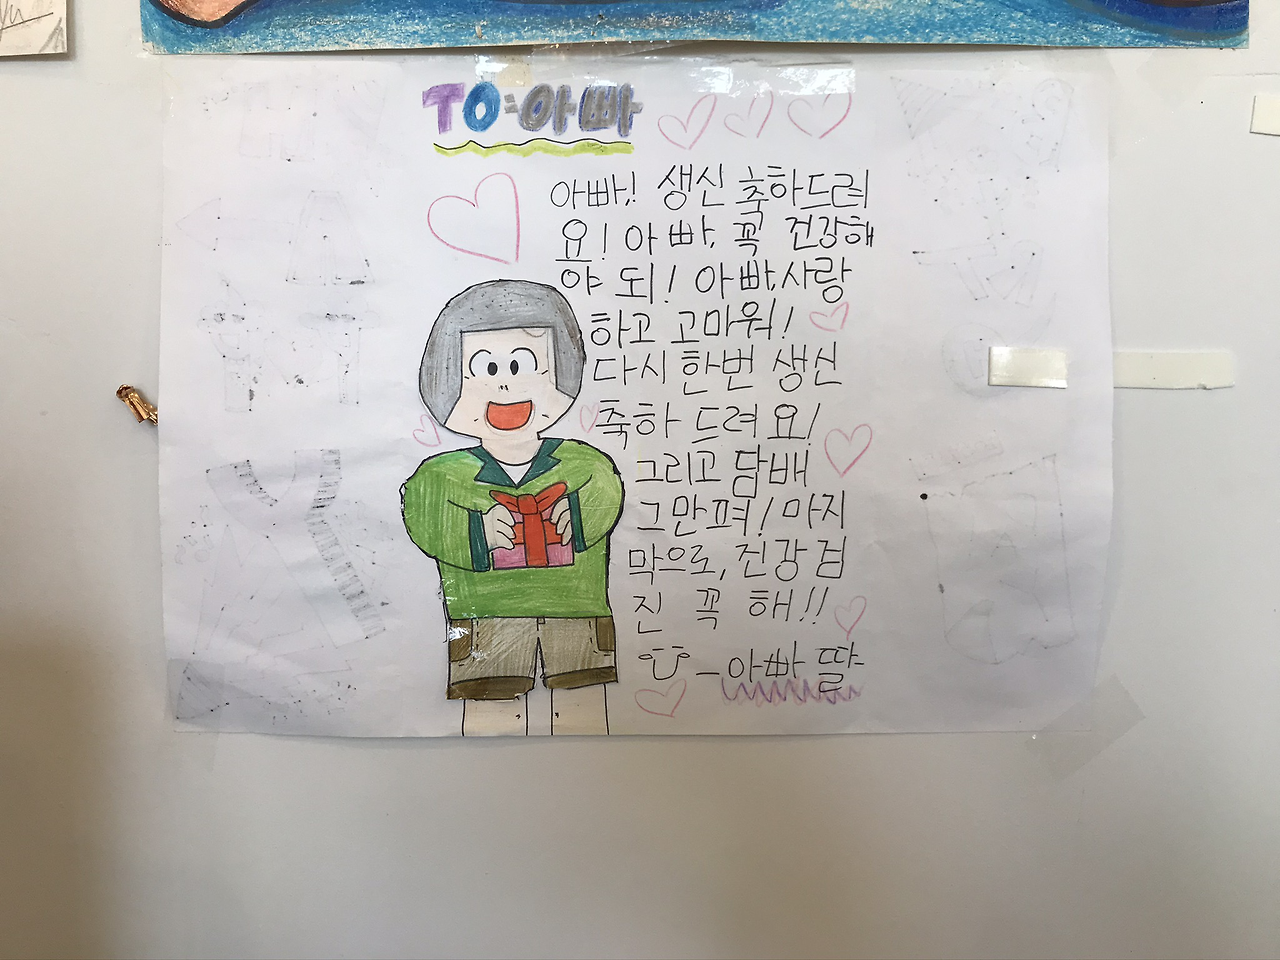 TO:아빠
아빠! 생신 축하드려
요! 아빠, 꼭 건강해
야 되! 아빠, 사랑
하고 고마워!
다시 한번 생신
축하 드려요!
그리고 담배
그만펴! 마지
막으로, 건강검
진 꼭 해!!
-아빠 딸-